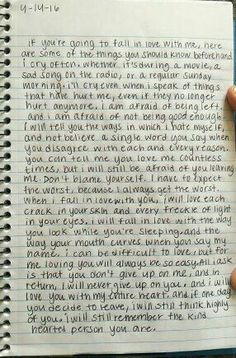 4-14-16
if you're going to fall in love with me, here
are some of the things you should know beforehand
i cry often. whether it's during a movie, a
sad song on the radio, or a regular sunday
morning. i'll cry even when i speak of things
that have hurt me, even if they no longer
hurt anymore. i am afraid of being left.
and i am afraid of not being good enough.
i will tell you the ways in which i hate myself,
and not believe a single word you say when
you disagree with each and every reason.
you can tell me you love me countless
times, but i will still be afraid of you leaving
me. Don't blame yourself. i have to expect
the worst, because i always get the worst.
when i fall in love with you, i will love each
crack in your skin and every freckle of light
in your eyes. i will fall in love with the way
you look while you're sleeping, and the
way your mouth curves when you say my
name. i can be difficult to love, but for
me loving you will always be so easy. All i ask
is that you don't give up on me, and in
return, i will never give up on you. and i will
love you with my entire heart. and if one day
you decide to leave, i will still think highly
of you. i will still remember the kind
hearted person you are.